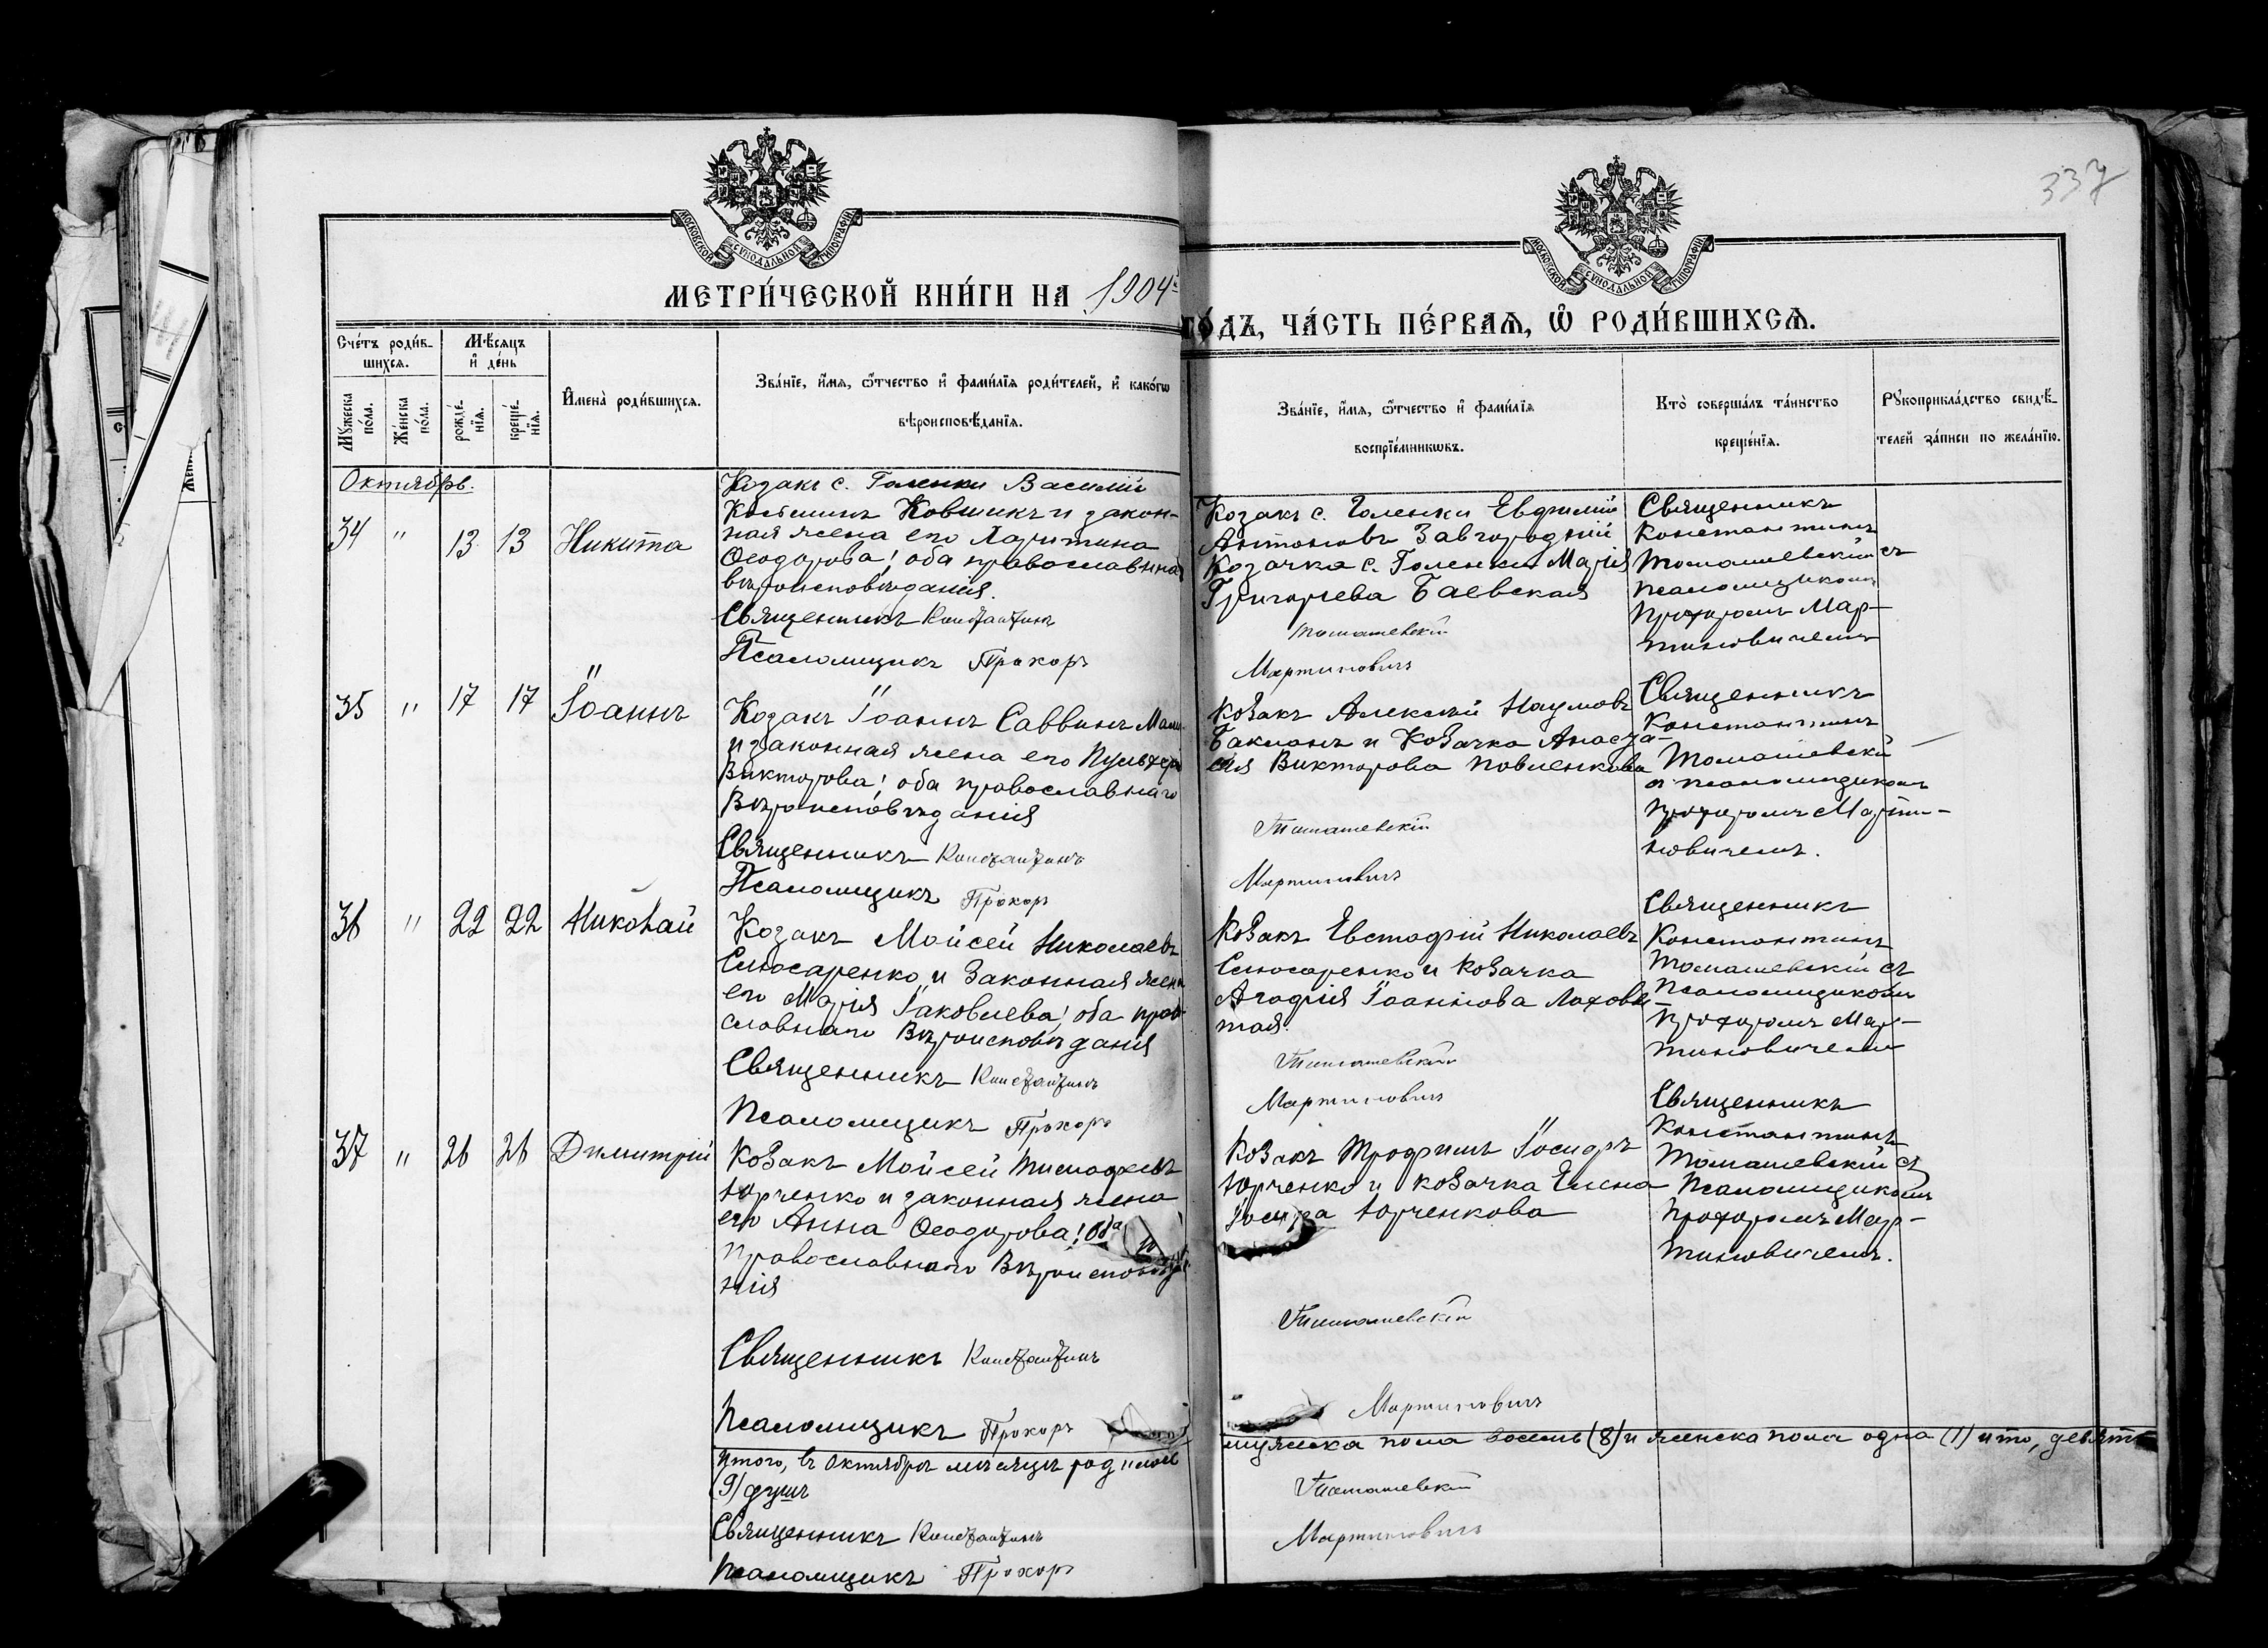 337
МОСКОВСКОЙ СУНОДАЛЬНОЙ ТИПОГРАФІИ
МОСКОВСКОЙ СУНОДАЛЬНОЙ ТИПОГРАФІИ
МЕТРИ́ЧЕСКОЙ КНИ́ГИ НА 1904
ГО́ДЪ, ЧА́СТЬ ПЕ́РВАѦ, Ѡ҆ РОДИ́ВШИХСѦ.
Сче́тъ роди́в-
шихсѧ.
Мѣ́сѧцъ
и҆ де́нь
Мꙋ́жеска
по́ла.
Же́нска
по́ла.
рожде́-
нїѧ.
креще́-
нїѧ.
И҆мена̀ роди́вшихсѧ.
Зва́нїе, и҆́мѧ, ѻ҆́тчество и҆ фами́лїѧ роди́телей, и҆ како́гѡ
вѣроисповѣ́данїѧ.
Зва́нїе, и҆́мѧ, ѻ҆́тчество и҆ фами́лїѧ
воспрїе́мникѡвъ.
Кто̀ соверша́лъ та́инство
креще́нїѧ.
Рꙋкоприкла́дство свидѣ́-
телей за́писи по жела́нїю.
Октябрь.
34 " 13 13 Никита
Козакъ с. Голенки Василій
Ковшикъ и закон-
ная жена его Харитина
Ѳеодорова; оба православнаго
вѣроисповѣданія.
Священникъ Константинъ
Псаломщикъ Прохоръ
Козакъ с. Голенки Евфимій
Антоновъ Завгородній
Козачка с. Голенки Марія
Григорьева Баевская
Томашевскій
Мартиновичъ
Священникъ
Константинъ
Томашевскій съ
псаломщикомъ
Прохоромъ Мар-
тиновичемъ
35 " 17 17 Іоаннъ
Козакъ Іоаннъ Саввинъ
и законная жена его Пульхерія
Викторова; оба православнаго
Вѣроисповѣданія
Священникъ Константинъ
Псаломщикъ Прохоръ
Козакъ Алексѣй Наумовъ
Бакланъ и Козачка Анаста-
сія Викторова Павленкова
Томашевскій
Мартиновичъ
Священникъ
Константинъ
Томашевскій
съ псаломщикомъ
Прохоромъ Марти-
новичемъ.
36 " 22 22 Николай
Козакъ Мойсей Николаевъ
Слюсаренко и Законная жена
его Марія Іаковлева; оба право-
славнаго Вѣроисповѣданія
Священникъ Константинъ
Псаломщикъ Прохоръ
Козакъ Евстафій Николаевъ
Слюсаренко и Козачка
Агафія Іоаннова
тая.
Томашевскій
Мартиновичъ
Священникъ
Константинъ
Томашевскій съ
Псаломщикомъ
Прохоромъ Мар-
тиновичемъ
37 " 26 26 Димитрій
Козакъ Мойсей Тимофеевъ
Юрченко и законная жена
его Анна Ѳеодорова; оба
Православнаго Вѣроисповѣда-
нія
Священникъ Константинъ
Псаломщикъ Прохоръ
Козакъ Трофимъ
Юрченко и козачка Елена
Юрченкова
Томашевскій
Мартиновичъ
Священникъ
Константинъ
Томашевскій съ
Псаломщикомъ
Прохоромъ Мар-
тиновичемъ.
Итого, въ Октябрѣ мѣсяцѣ родилось мужеска пола восемь (8) и женска пола одна (1) итого, девять
(9) душъ
Священникъ Константинъ Томашевскій
Псаломщикъ Прохоръ Мартиновичъ